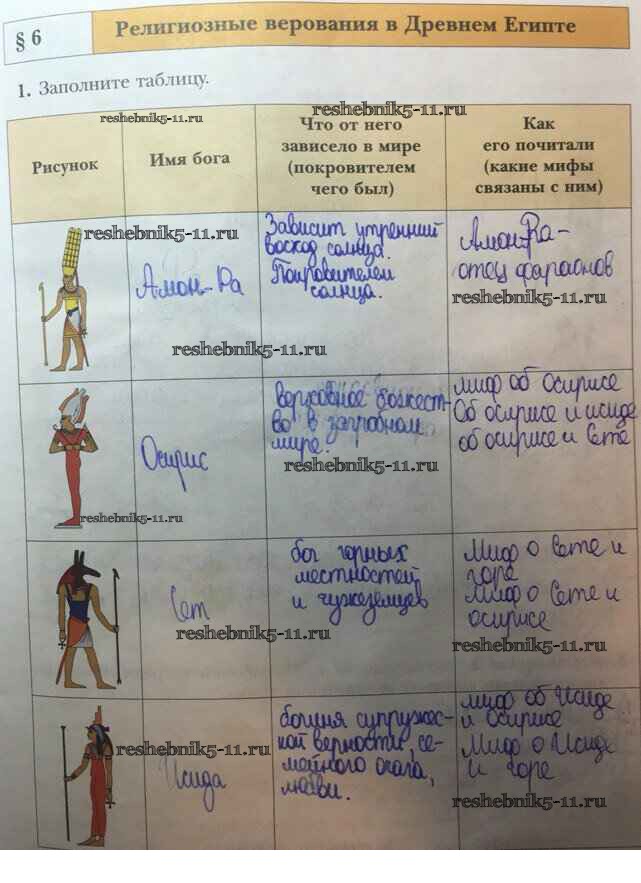 § 6
Религиозные верования в Древнем Египте
1. Заполните таблицу.
reshebnik5-11.ru
reshebnik5-11.ru
Рисунок
Имя бога
Что от него
зависело в мире
(покровителем
чего был)
Как
его почитали
(какие мифы
связаны с ним)
reshebnik5-11.ru
Амон-Ра
Зависит утренний
восход солнца.
Покровителем
солнца.
Амон-Ра-
отец фараонов
reshebnik5-11.ru
reshebnik5-11.ru
Осирис
верховное божест-
во в загробном
мире.
миф об Осирисе
Об осирисе и исиде
об осирисе и Сете
reshebnik5-11.ru
reshebnik5-11.ru
Сет
бог горных
местностей
и чужеземцев
Миф о Сете и
горе
Миф о Сете и
осирисе
reshebnik5-11.ru
reshebnik5-11.ru
Исида
богиня супружес-
кой верности, се-
мейного очага,
любви.
миф об Исиде
и Осирисе
Миф о Исиде
и горе
reshebnik5-11.ru
reshebnik5-11.ru